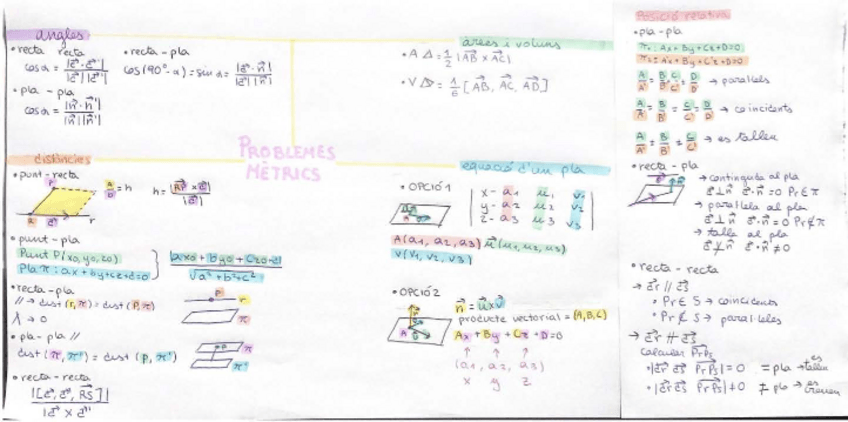 angles
• recta recta
cosα = |d⃗ · d⃗'| / |d⃗| |d⃗'|
• pla - pla
cosα = |n⃗ · n⃗'| / |n⃗| |n⃗'|
• recta - pla
cos(90º - α) = sin α = |d⃗ · n⃗| / |d⃗| |n⃗|
àrees i volums
• A Δ = 1/2 |AB × AC|
• V = 1/6 [AB, AC, AD]
PROBLEMES
MÈTRICS
distàncies
• punt - recta
A/D = h
h = |RP × d⃗| / |d⃗|
• punt - pla
Punt P(x0, y0, z0)
Pla π: ax + by + cz + d = 0
|ax0 + by0 + cz0 + d| / √a² + b² + c²
• recta - pla
// → dist (r, π) = dist (P, π)
→ 0
• pla - pla //
dist (π, π') = dist (p, π')
• recta - recta
|[d⃗, d⃗', RS]|
|d⃗ × d⃗'|
equació d'un pla
• OPCIÓ 1
x - a1 u1 v1
y - a2 u2 v2
z - a3 u3 v3
A(a1, a2, a3) u⃗(u1, u2, u3)
v(v1, v2, v3)
• OPCIÓ 2
n⃗ = u⃗ x v⃗
producte vectorial = (A, B, C)
Ax + By + Cz + D = 0
↑ ↑ ↑
(a1, a2, a3)
x y z
Posició relativa
• pla - pla
π1: Ax + By + Cz + D = 0
π2 = A'x + B'y + C'z + D = 0
A/A' = B/B' = C/C' ≠ D/D' → paral·lels
A/A' = B/B' = C/C' = D/D' → coincidents
A/A' ≠ B/B' ≠ C/C' → es tallen
• recta - pla
→ continguda al pla
d⃗ ⊥ n⃗ d⃗ · n⃗ = 0 Pr ∈ π
→ paral·lela al pla
d⃗ ⊥ n⃗ d⃗ · n⃗ = 0 Pr ∉ π
→ talla al pla
d⃗ · n⃗ ≠ 0
• recta - recta
→ dr // ds
• Pr ∈ S → coincidents
• Pr ∉ S → paral·leles
→ dr ∦ ds
Calcular PrPs
• |dr ds PrPs| = 0 = pla → es tallen
• |dr ds PrPs| ≠ 0 ≠ pla → es creuen